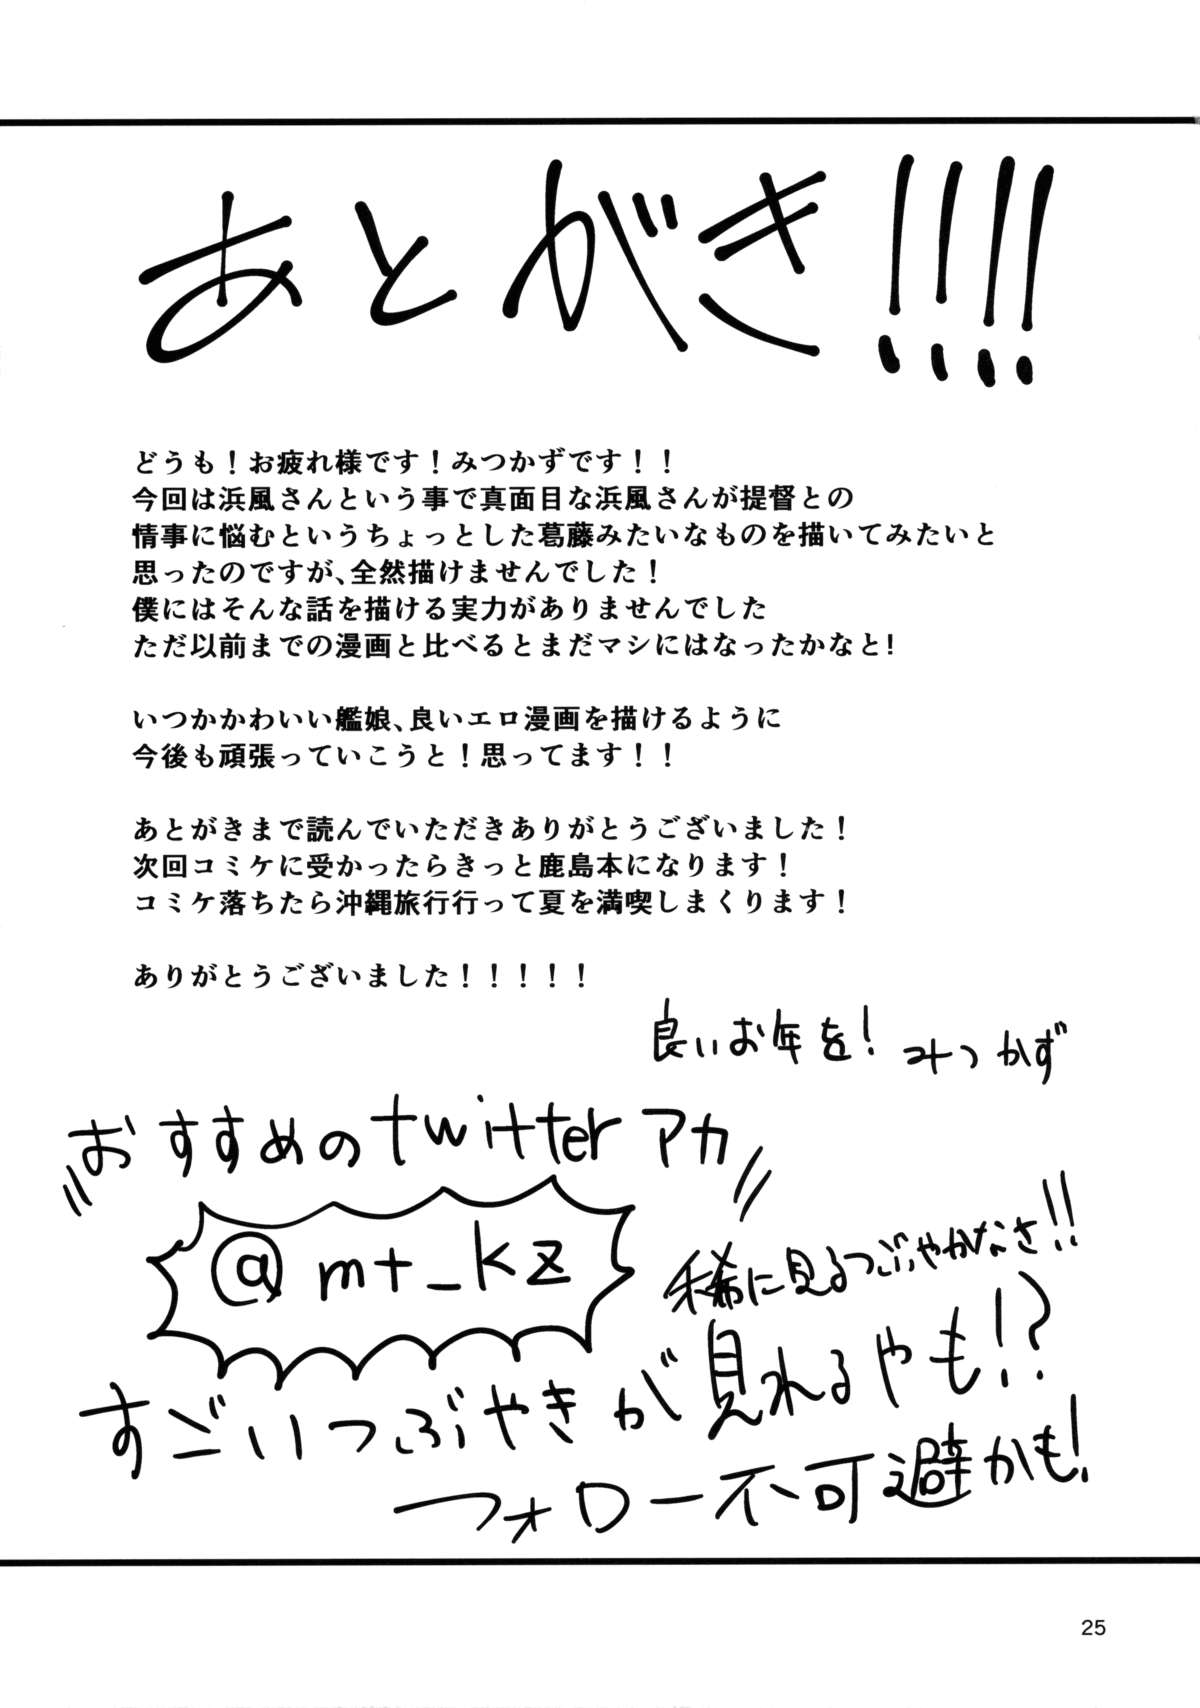 あとがき!!!!
どうも！お疲れ様です！みつかずです！！
今回は浜風さんという事で真面目な浜風さんが提督との
情事に悩むというちょっとした葛藤みたいなものを描いてみたいと
思ったのですが、全然描けませんでした！
僕にはそんな話を描ける実力がありませんでした
ただ以前までの漫画と比べるとまだマシにはなったかなと!
いつかかわいい艦娘、良いエロ漫画を描けるように
今後も頑張っていこうと！思ってます！！
あとがきまで読んでいただきありがとうございました！
次回コミケに受かったらきっと鹿島本になります！
コミケ落ちたら沖縄旅行行って夏を満喫しまくります！
ありがとうございました！！！！！
良いお年を! みつかず
おすすめのtwitterアカ
@mt_kz
稀に見るつぶやかなさ!!
すごいつぶやきが見れるやも!?
フォロー不可避かも!
25